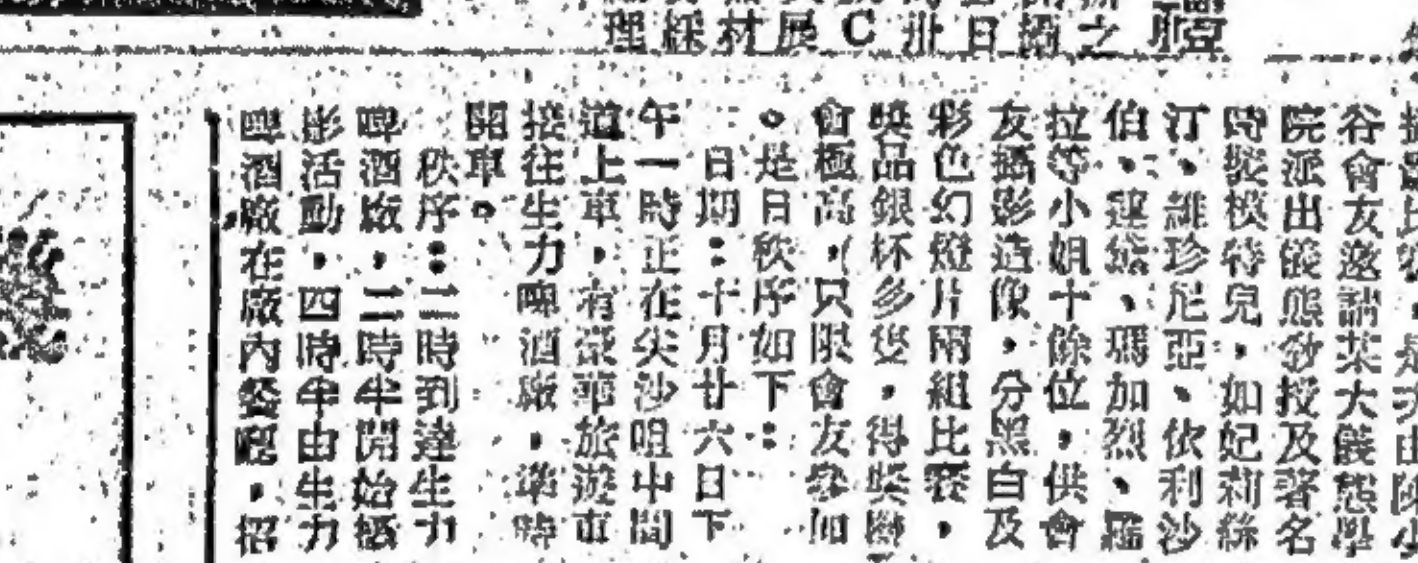 禮
之
攝
日
卅
C
展
材
綵
理
谷會友邀請某大儀態學
院派出儀態教授及著名
時裝模特兒，如妃莉絲
汀、維珍尼亞、依利沙
伯、建絲、瑪加烈、羅
拉等小姐十餘位，供會
友攝影造像，分黑白及
彩色幻燈片兩組比賽，
獎品銀杯多隻，得獎機
會極高，（只限會友參加
。是日秩序如下：
日期：十月廿六日下
午一時正在尖沙咀中間
道上車，有豪華旅遊車
接往生力啤酒廠，準時
開車。
秩序：二時到達生力
啤酒廠，二時半開始攝
影活動，四時半由生力
啤酒廠在廠內餐廳，招